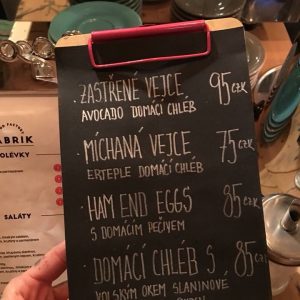 FABRIK
POLÉVKY
SALÁTY
· ZASTŘENÉ VEJCE 95 CZK
AVOCADO DOMÁCÍ CHLÉB
· MÍCHANÁ VEJCE 75 CZK
ERTEPLE DOMÁCÍ CHLÉB
· HAM END EGGS 85 CZK
S DOMÁCÍM PEČIVEM
DOMÁCÍ CHLÉB S 85 CZK
VOLSKÝM OKEM SLANINOVÉ